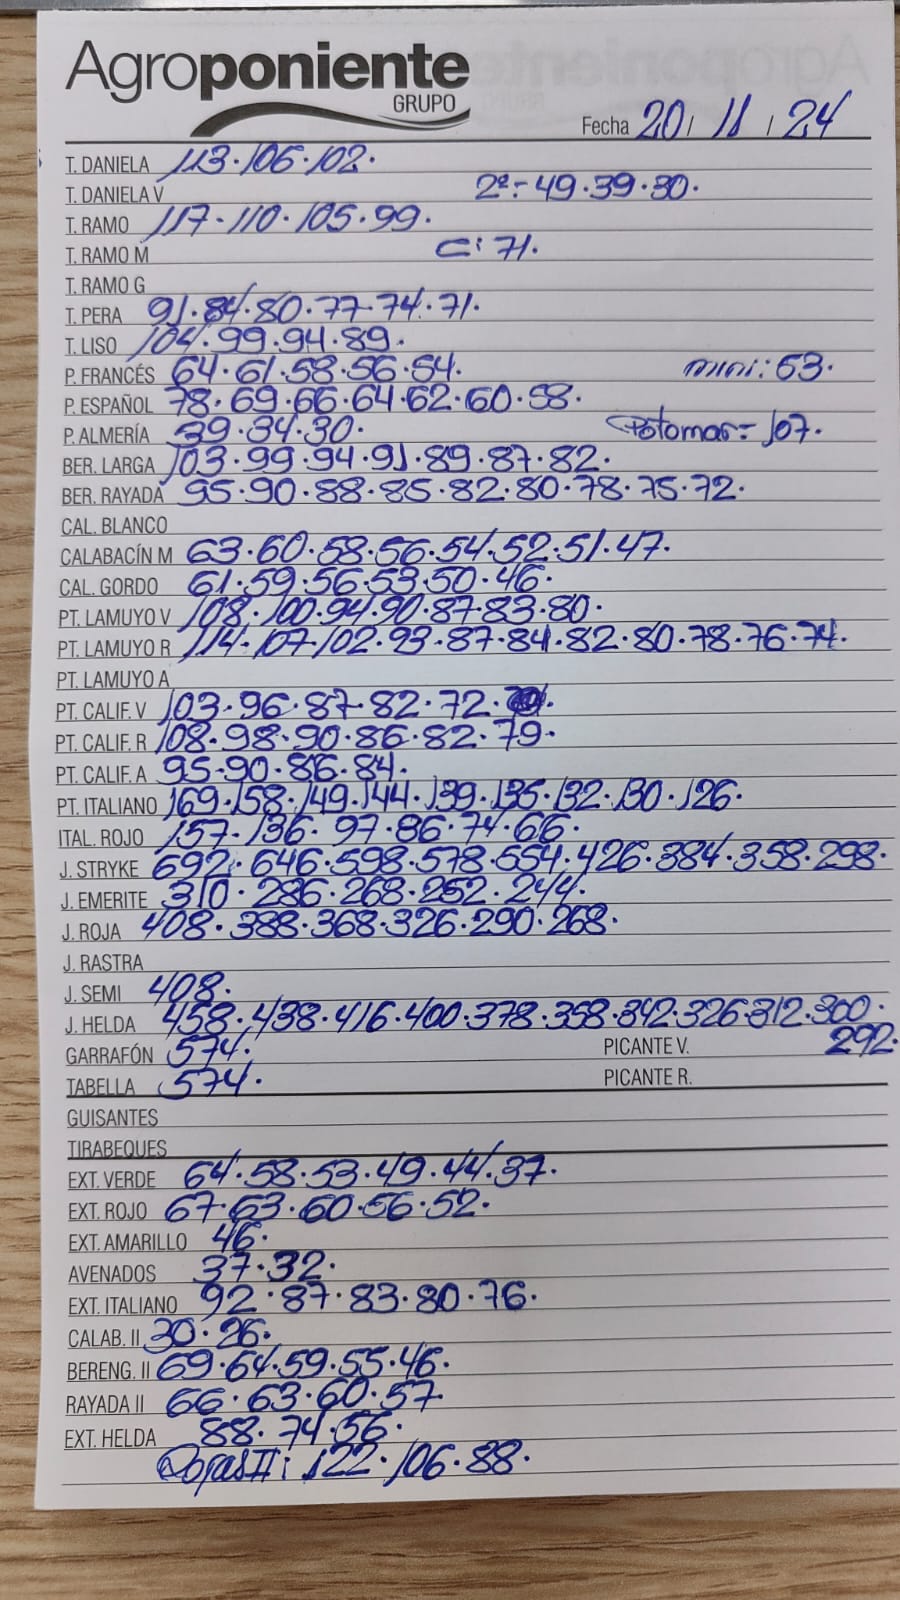 Agroponiente
GRUPO
Fecha 20 / 11 / 24
T. DANIELA 113·106·102·
T. DANIELA V 2ª:- 49·39·30·
T. RAMO 117·110·105·99·
T. RAMO M C: 71·
T. RAMO G
T. PERA 91·84·80·77·74·71·
T. LISO 104·99·94·89·
P. FRANCÉS 64·61·58·56·54· mini: 63·
P. ESPAÑOL 78·69·66·64·62·60·58·
P. ALMERÍA 39·34·30· Potomac= 107·
BER. LARGA 103·99·94·91·89·87·82·
BER. RAYADA 95·90·88·85·82·80·78·75·72·
CAL. BLANCO
CALABACÍN M 63·60·58·56·54·52·51·47·
CAL. GORDO 61·59·56·53·50·46·
PT. LAMUYO V 108·100·94·90·87·83·80·
PT. LAMUYO R 114·107·102·93·87·84·82·80·78·76·74·
PT. LAMUYO A
PT. CALIF. V 103·96·87·82·72·
PT. CALIF. R 108·98·90·86·82·79·
PT. CALIF. A 95·90·86·84·
PT. ITALIANO 169·158·149·144·139·135·132·130·126·
ITAL. ROJO 157·136·97·86·74·66·
J. STRYKE 692·646·598·578·554·426·384·358·298·
J. EMERITE 310·286·268·252·244·
J. ROJA 408·388·368·326·290·268·
J. RASTRA
J. SEMI 408·
J. HELDA 458·438·416·400·378·358·342·326·312·300·
GARRAFÓN 574· PICANTE V. 292·
TABELLA 574· PICANTE R.
GUISANTES
TIRABEQUES
EXT. VERDE 64·58·53·49·44·37·
EXT. ROJO 67·63·60·56·52·
EXT. AMARILLO 46·
AVENADOS 37·32·
EXT. ITALIANO 92·87·83·80·76·
CALAB. II 30·26·
BERENG. II 69·64·59·55·46·
RAYADA II 66·63·60·57
EXT. HELDA 88·74·56·
Rojas II: 122·106·88·